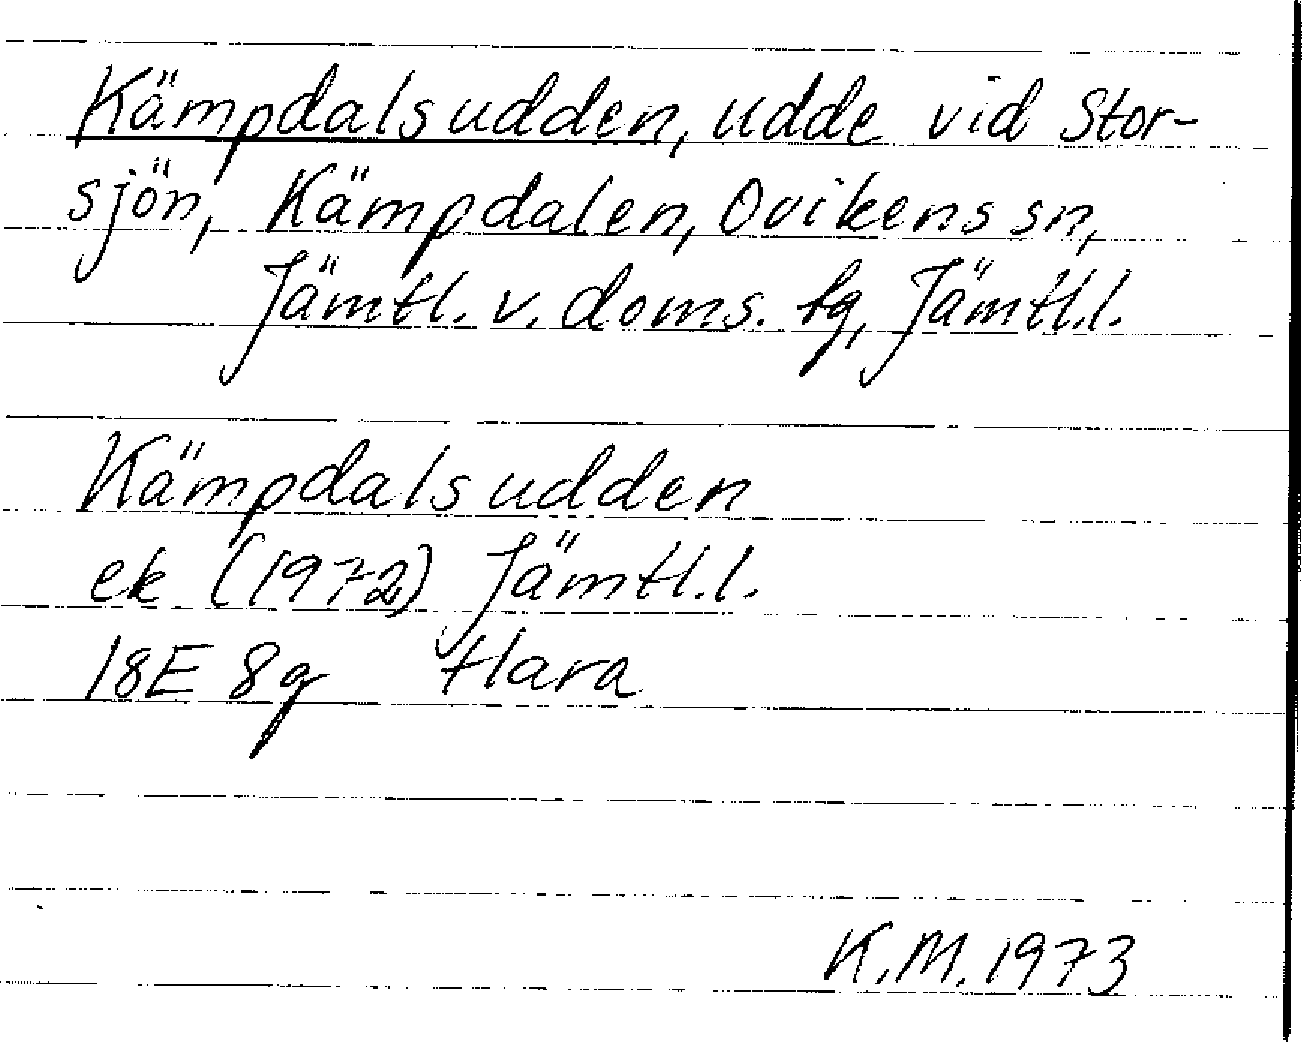 Kämpdalsudden, udde vid Stor-
sjön, Kämpdalen, Ovikens sn,
Jämtl. v. doms. tg, Jämtl.l.
Kämpdalsudden
ek (1972) Jämtl.l.
18E 8g Hara
K.M. 1973